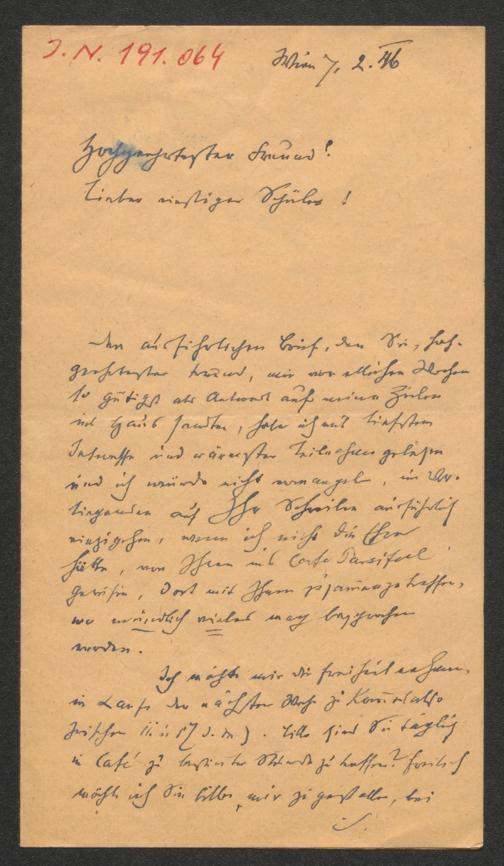 J.N. 191.064
Wien 7, 2. 46
Hochgeehrtester Freund!
Lieber einstiger Schüler!
Den ausführlichen Brief, den Sie, hoch-
geehrtester Freund, mir vor etlichen Wochen
so gütigst als Antwort auf meine Zeilen
ins Haus sandten, habe ich mit tiefstem
Interesse und wärmster Teilnahme gelesen
und ich würde nicht ermangeln, im Vor-
liegenden auf Ihr Schreiben ausführlich
einzugehen, wenn ich nicht die Ehre
hätte, von Ihnen ins Café Parsifal
gewiesen, dort mit Ihnen zusammenzutreffen,
wo mündlich vieles mag besprochen
werden.
Ich möchte mir die Freiheit nehmen,
im Laufe der nächsten Woche zu kommen
zwischen 11 u 17 d. M). Bitte sind Sie täglich
im Café zu bestimmter Stunde zu treffen? Freilich
möchte ich Sie bitten, mir zu gestatten, bei